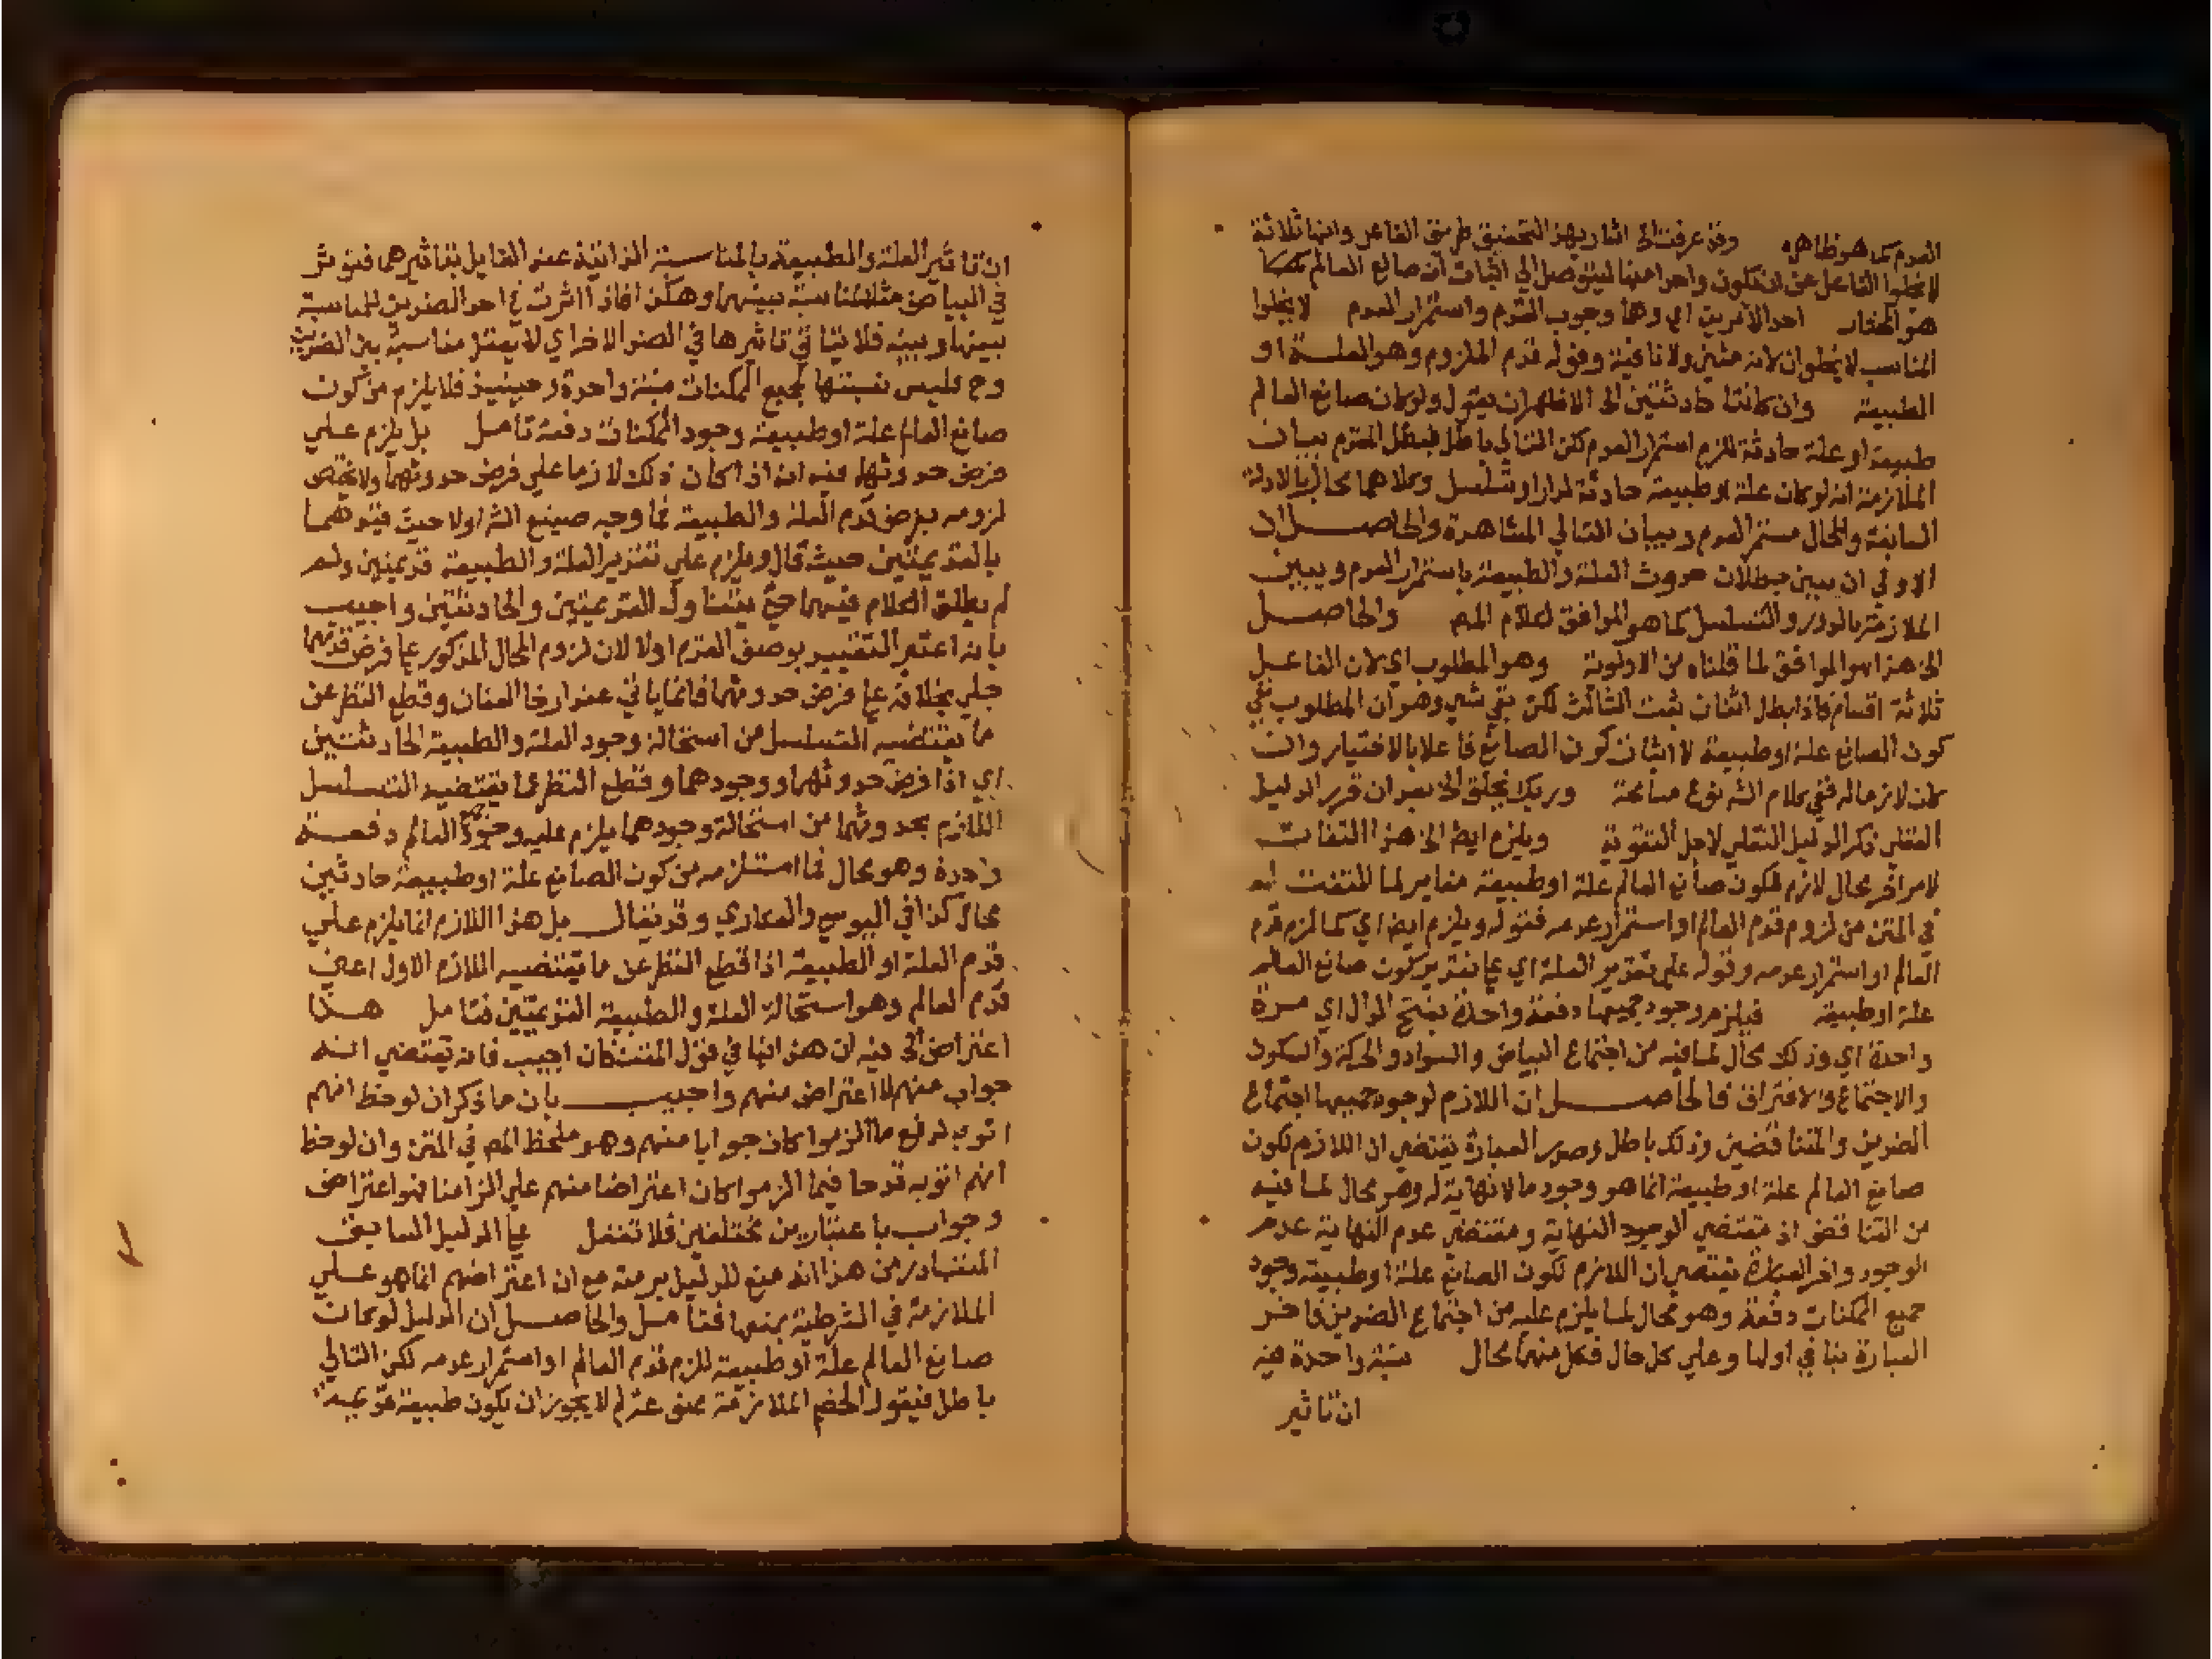 العدم كما هو ظاهر وقد عرفت الخ اشار بهذا التحقيق طريق الفاعل وانها ثلاثة
لا يخلوا الفاعل عن ان يكون واحدا منها ليتوصل الي اثبات ان صانع العالم
هو المختار احد الامرين اي وهما وجوب القدم واستمرار العدم لا يخلوا
المناسب لا يخلوان لانه مثني ولا نافية وقوله قدم الملزوم وهو العلة او
الطبيعة وان كانتا حادثتين الخ الاظهر ان يقول ولو كان صانع العالم
طبيعة او علة حادثة للزم استمرار العدم لكن التالي باطل فبطل المقدم بيان
الملازمة انه لو كان علة او طبيعة حادثة لدار او تسلسل وكلاهما محال بالادلة
السابقة والمحال مستمر العدم وبيان التالي المشاهدة والحاصل ان
الاولي ان يبين بطلان حدوث العلة والطبيعة باستمرار العدم ويبين
الملازمة بالدور والتسلسل كما هو الموافق لكلام المص والحاصل
الخ هذا هو الموافق لما قلناه من الاولوية وهو المطلوب اي لان الفاعل
ثلاثة اقسام فاذا بطل اثنان ثبت الثالث لكن بقي شي وهو ان المطلوب نفي
كون الصانع علة او طبيعة لا اثبات كون الصانع فاعلا بالاختيار وان
كان لازما له ففي كلام الش نوع مسامحة وربك يخلق الخ بعد ان قرر الدليل
العقلي ذكر الدليل النقلي لاجل التقوية ويلزم ايضا الخ هذا التفات
لامر اخر محال لازم لكون صانع العالم علة او طبيعة مغاير لما التفت له
في المتن من لزوم قدم العالم او استمرار عدمه فقوله ويلزم ايضا اي كما لزم قدم
العالم او استمرار عدمه وقوله علي تقدير العلة اي علي تقدير كون صانع العالم
علة او طبيعة فيلزم وجود جميعها دفعة واحدة بفتح الدال اي مرة
واحدة اي وذلك محال لما فيه من اجتماع البياض والسواد والحركة والسكون
والاجتماع والافتراق فالحاصل ان اللازم لوجود جميعها اجتماع
الضدين والمتناقضين وذلك باطل وصدر العبارة يقتضي ان اللازم لكون
صانع العالم علة او طبيعة انما هو وجود ما لا نهاية له وهو محال لما فيه
من التناقض اذ مقتضي الوجود النهاية ومقتضي عدم النهاية عدم
الوجود واخر العبارة يقتضي ان اللازم لكون الصانع علة او طبيعة وجود
جميع الممكنات دفعة وهو محال لما يلزم عليه من اجتماع الضدين فاخر
العبارة ينافي اولها وعلي كل حال فكل منهما محال نسبة واحدة فيه
ان تاثير
ان تاثير العلة والطبيعة بالمناسبة الذاتية عند القايل بتاثيرهما فتوثر
في البياض مثلا لمناسبة بينهما وهكذا فاذا اثرت في احد الضدين لمناسبة
بينها وبينه فلا يتاتي تاثيرها في الضد الاخر اي لا يعقل مناسبة بين الضدين
وح فليس نسبتها لجميع الممكنات نسبة واحدة وحينيذ فلا يلزم من كون
صانع العالم علة او طبيعة وجود الممكنات دفعة تامل بل يلزم علي
فرض حدوثها فيه انه اذا كان ذلك لازما علي فرض حدوثهما ولا يختص
لزومه بفرض قدم العلة والطبيعة فما وجه صنيع الش اولا حيث قيدهما
بالقديمتين حيث قال ويلزم علي تقدير العلة والطبيعة قديمتين ولم
لم يطلق الكلام فيهما حتي يتناول القديمتين والحادثتين واجيب
بانه اعتبر التقييد بوصف القدم اولا لان لزوم المحال المذكور علي فرض قدمهما
جلي بخلافه علي فرض حدوثهما فانما ياتي عند ارخا العنان وقطع النظر عن
ما يقتضيه التسلسل من استحالة وجود العلة والطبيعة الحادثتين
اي اذا فرض حدوثهما ووجودهما وقطع النظر عما يقتضيه التسلسل
اللازم بحدوثهما من استحالة وجودهما يلزم عليه وجود العالم دفعة
واحدة وهو محال فما استلزمه من كون الصانع علة او طبيعة حادثين
محال كذا في اليوسي والعكاري وقد يقال بل هذا اللازم انما يلزم علي
قدم العلة او الطبيعة اذا قطع النظر عن ما يقتضيه اللازم الاول اعني
قدم العالم وهو استحالة العلة والطبيعة القديمتين فتامل هذا
اعتراض الخ فيه ان هذا ينافي قول المتن فان اجيب فانه يقتضي انه
جواب منهم لا اعتراض منهم واجيب بان ما ذكر ان لوحظ انهم
اتوا به لدفع ما الزموا كان جوابا منهم وهو ملحظ المص في المتن وان لوحظ
انهم اتوا به قدحا فيما الزموا كان اعتراضا منهم علي الزامنا فهو اعتراض
وجواب باعتبارين مختلفين فلا تغفل علي الدليل السابق
المتبادر من هذا انه منع للدليل برمته مع ان اعتراضهم انما هو علي
الملازمة في الشرطية بمنعها فتامل والحاصل ان الدليل لو كان
صانع العالم علة او طبيعة للزم قدم العالم او استمرار عدمه لكن التالي
باطل فيقول الخصم الملازمة ممنوعة لم لا يجوز ان يكون طبيعة قديمة